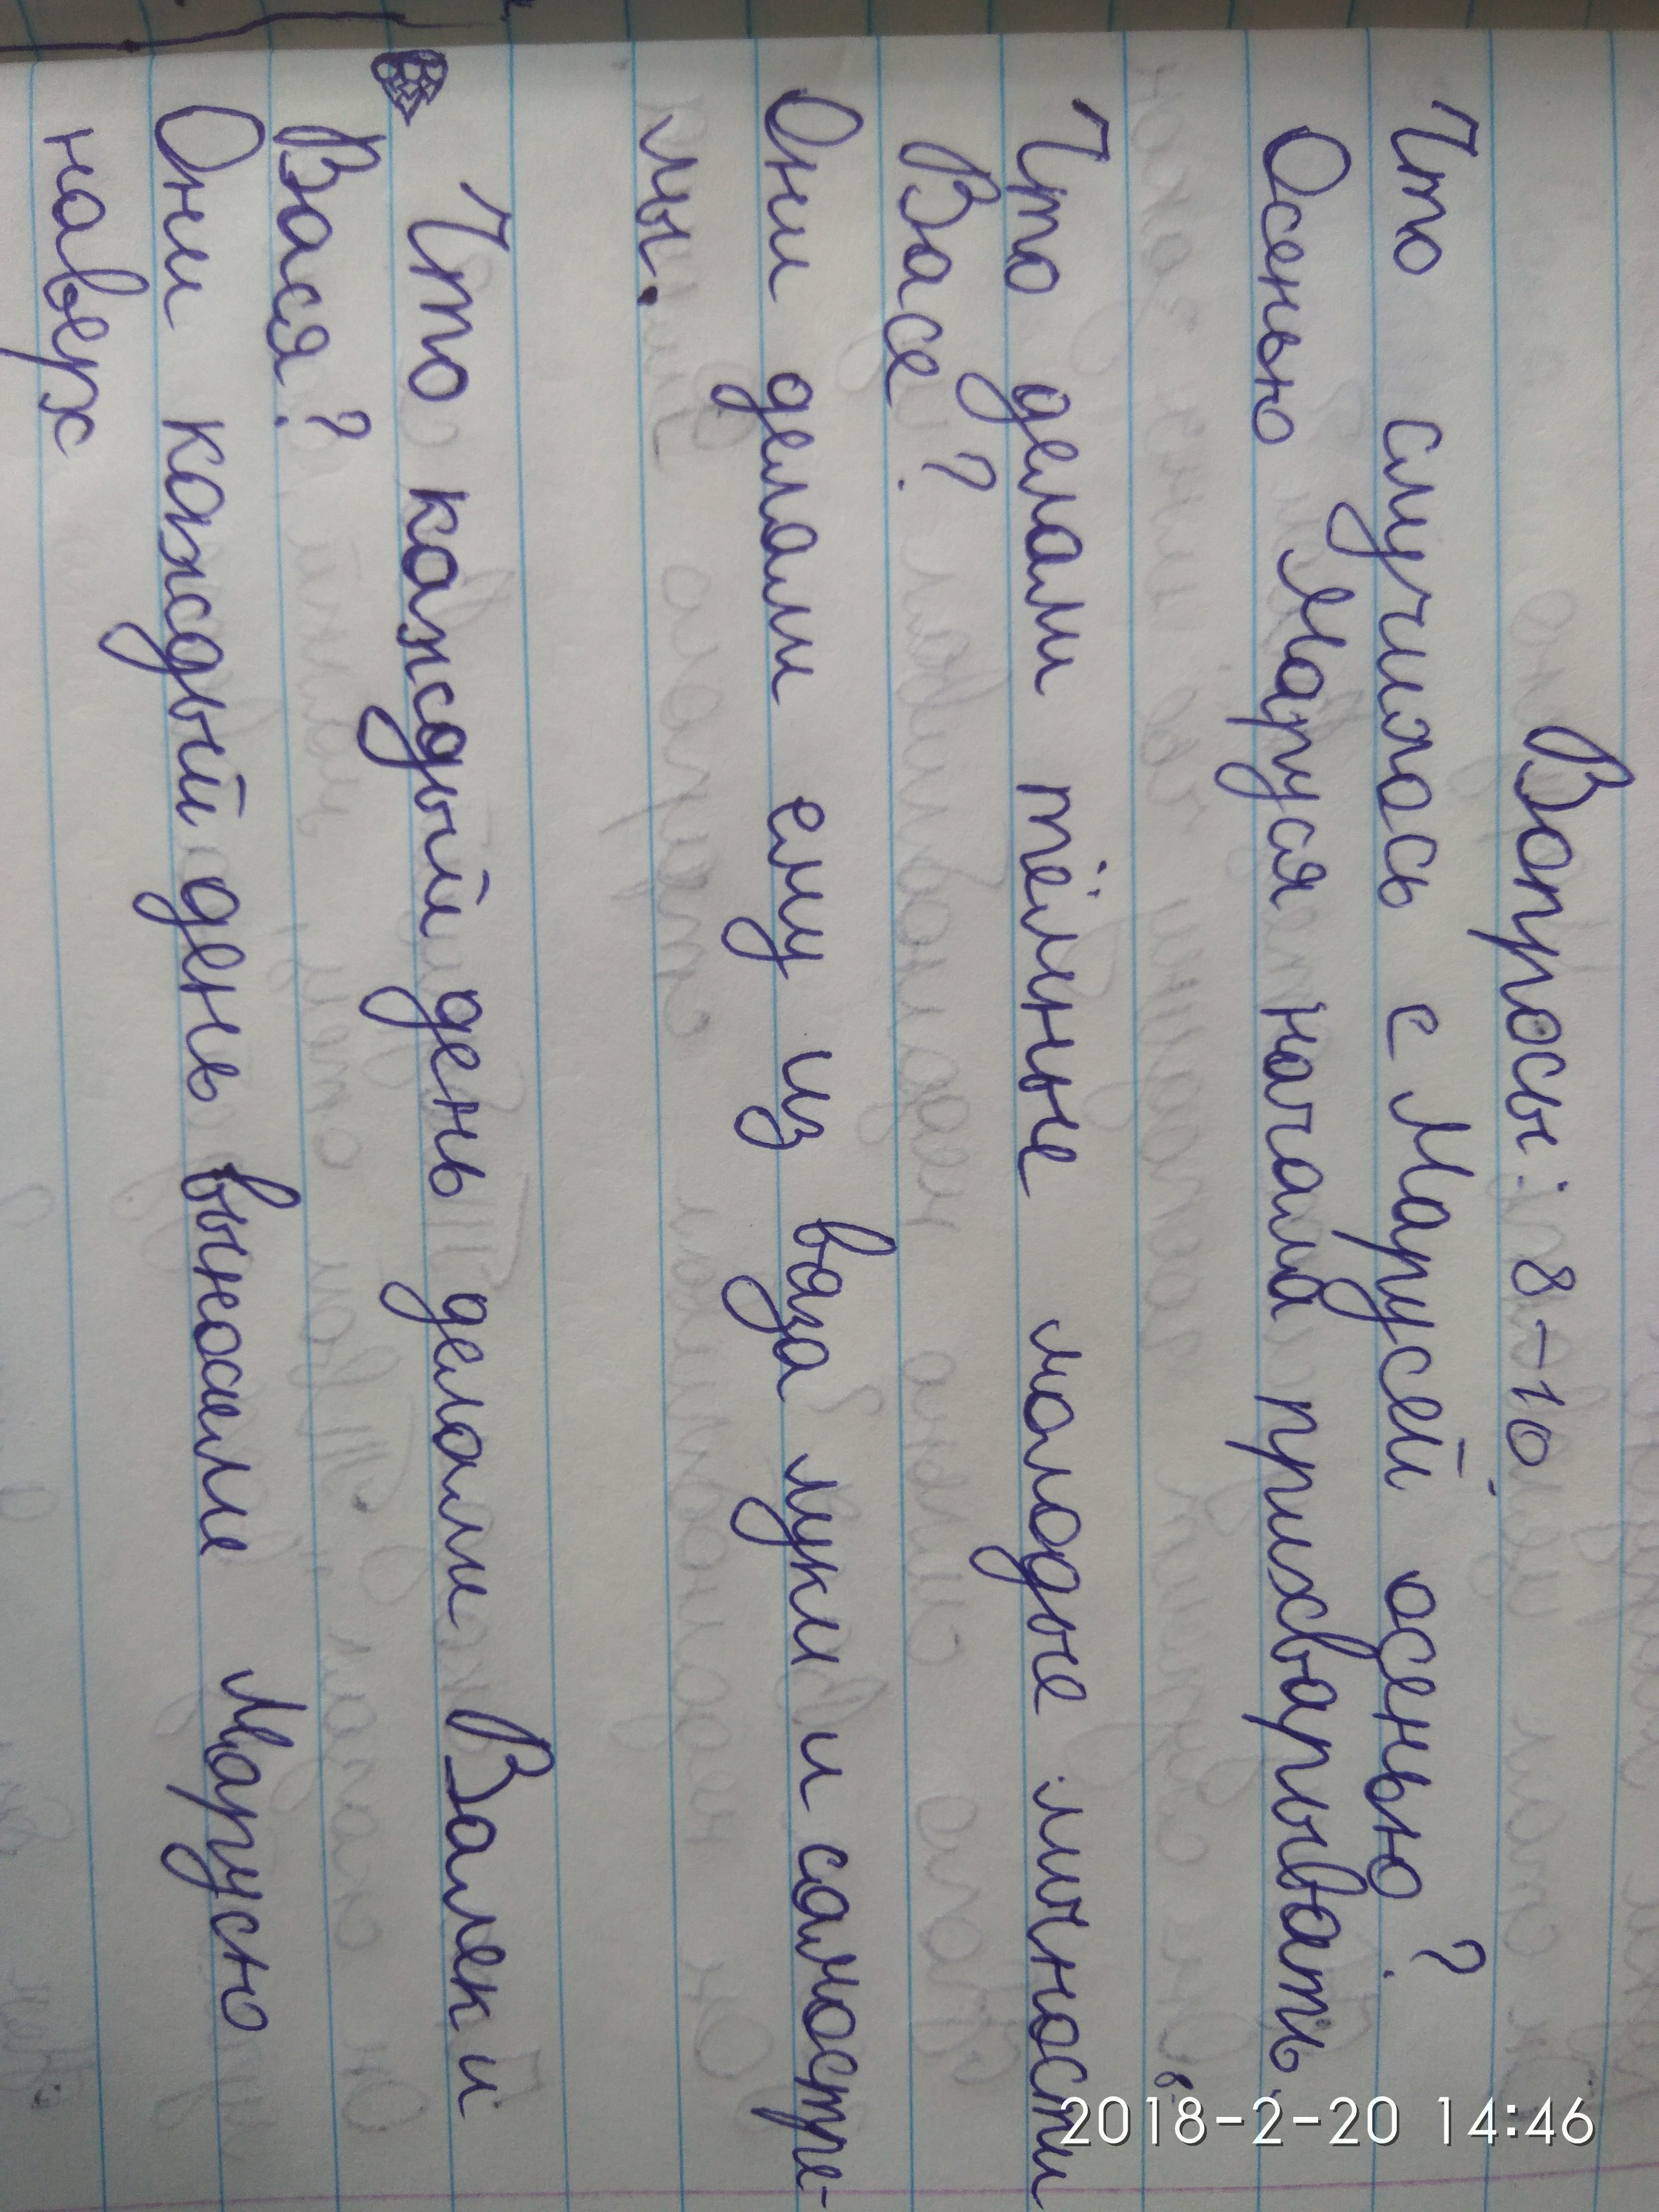 Вопросы: 8-10
Что случилось с Марусей осенью?
Осенью Маруся начала прихварывать.
Что делали тёмные молодые личности
Васе?
Они делали ему из вяза луки и самостре-
лы.
Что каждый день делали Валек и
Вася?
Они каждый день выносили Марусю
наверх
2018-2-20 14:46